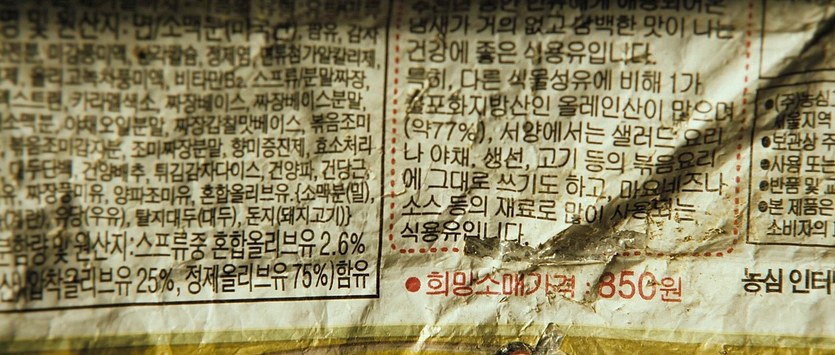 명 및 원산지: 면/소맥분(미국산), 팜유, 감자
전분, 미감풍미액, 칼슘, 정제염, 면류첨가알칼리제,
제, 올리고녹차풍미액, 비타민B₂, 스프류/분말짜장,
덱스트린, 카라멜색소, 짜장베이스, 짜장베이스분말,
소맥분, 야채오일분말, 짜장감칠맛베이스, 볶음조미
볶음조미감자분, 조미짜장분말, 향미증진제, 효소처리
대두단백, 건양배추, 튀김감자다이스, 건양파, 건당근,
유, 짜장풍미유, 양파조미유, 혼합올리브유.{소맥분(밀),
유당(우유), 탈지대두(대두), 돈지(돼지고기)}
분함량 및 원산지:스프류중 혼합올리브유 2.6%
압착올리브유 25%, 정제올리브유 75%)함유
냄새가 거의 없고 담백한 맛이 나는
건강에 좋은 식용유입니다.
특히, 다른 식물성유에 비해 1가
불포화지방산인 올레인산이 많으며
(약77%), 서양에서는 샐러드 요리
나 야채, 생선, 고기 등의 볶음요리
에 그대로 쓰기도 하고, 마요네즈나
소스 등의 재료로 많이 사용되는
식용유입니다.
●희망소매가격 : 850원
●(주)농심
●보관상 주
●사용 또는
●반품 및 교
●본 제품은
소비자의
농심 인터